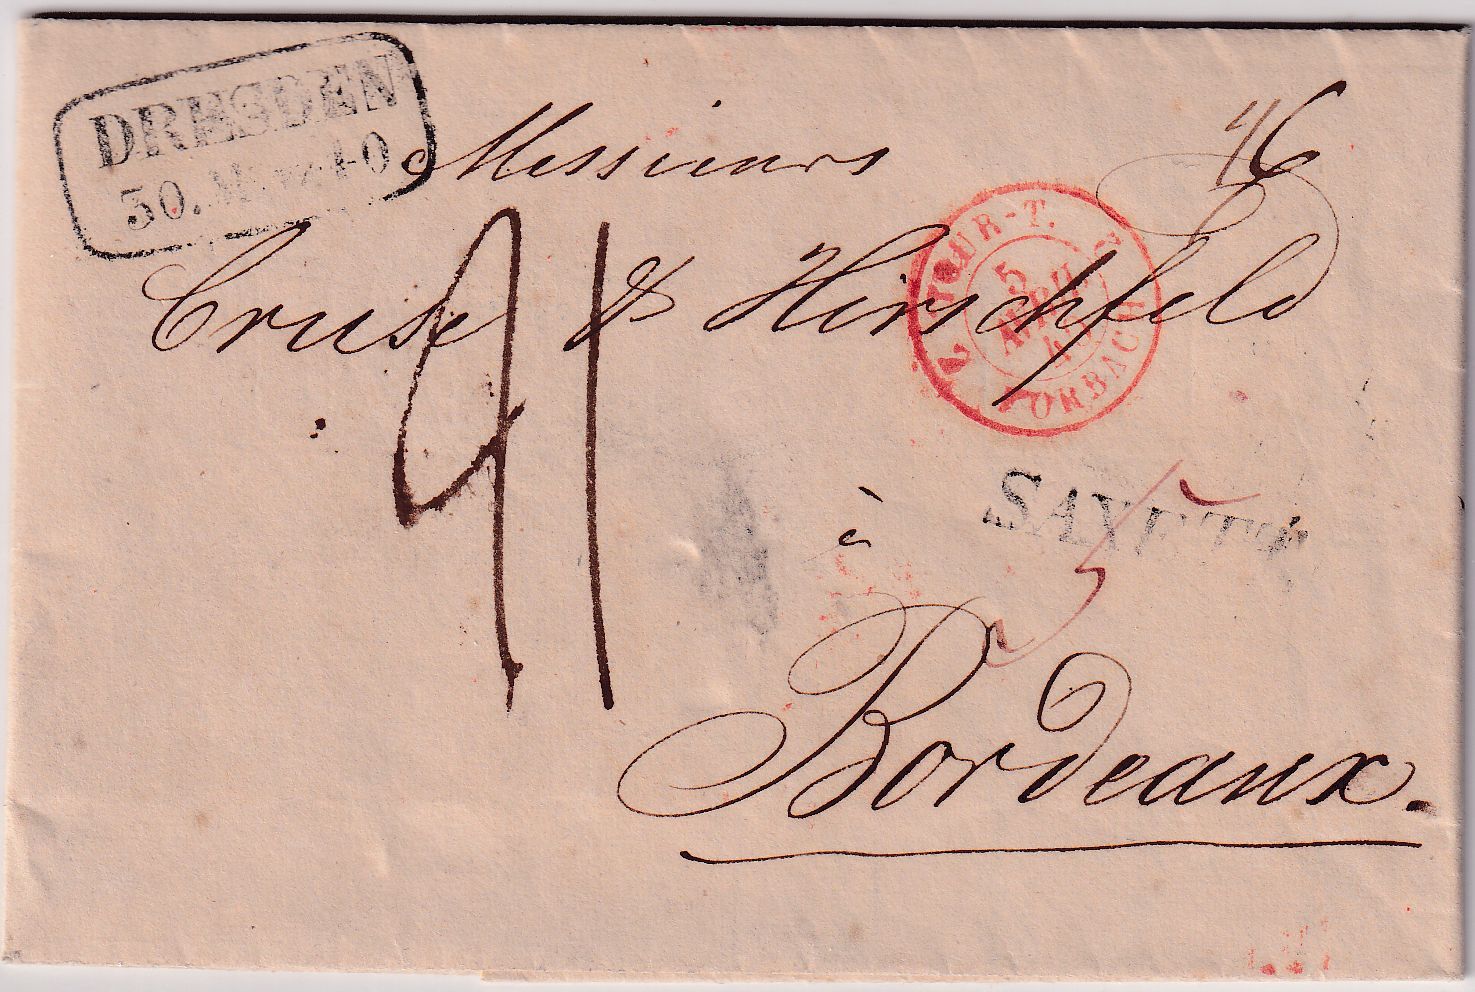 DRESDEN
30. März 40
Messieurs
Cruse & Hirschfeld
à
Bordeaux.
2 TOUR-T. 2
5
AVRIL
40
FORBACH
41
5